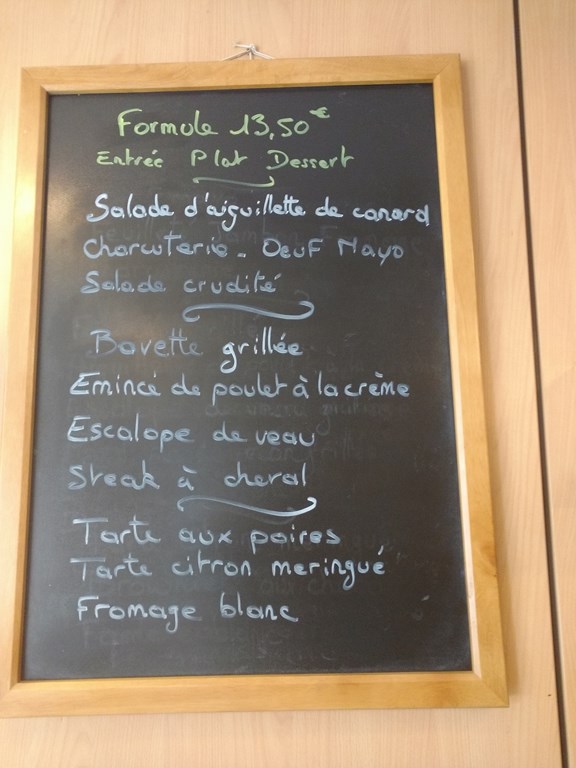 Formule 13,50€
Entrée Plat Dessert
Salade d'aiguillette de canard
Charcuterie - Oeuf Mayo
Salade crudité
Bavette grillée
Emincé de poulet à la crème
Escalope de veau
Steak à cheval
Tarte aux poires
Tarte citron meringué
Fromage blanc